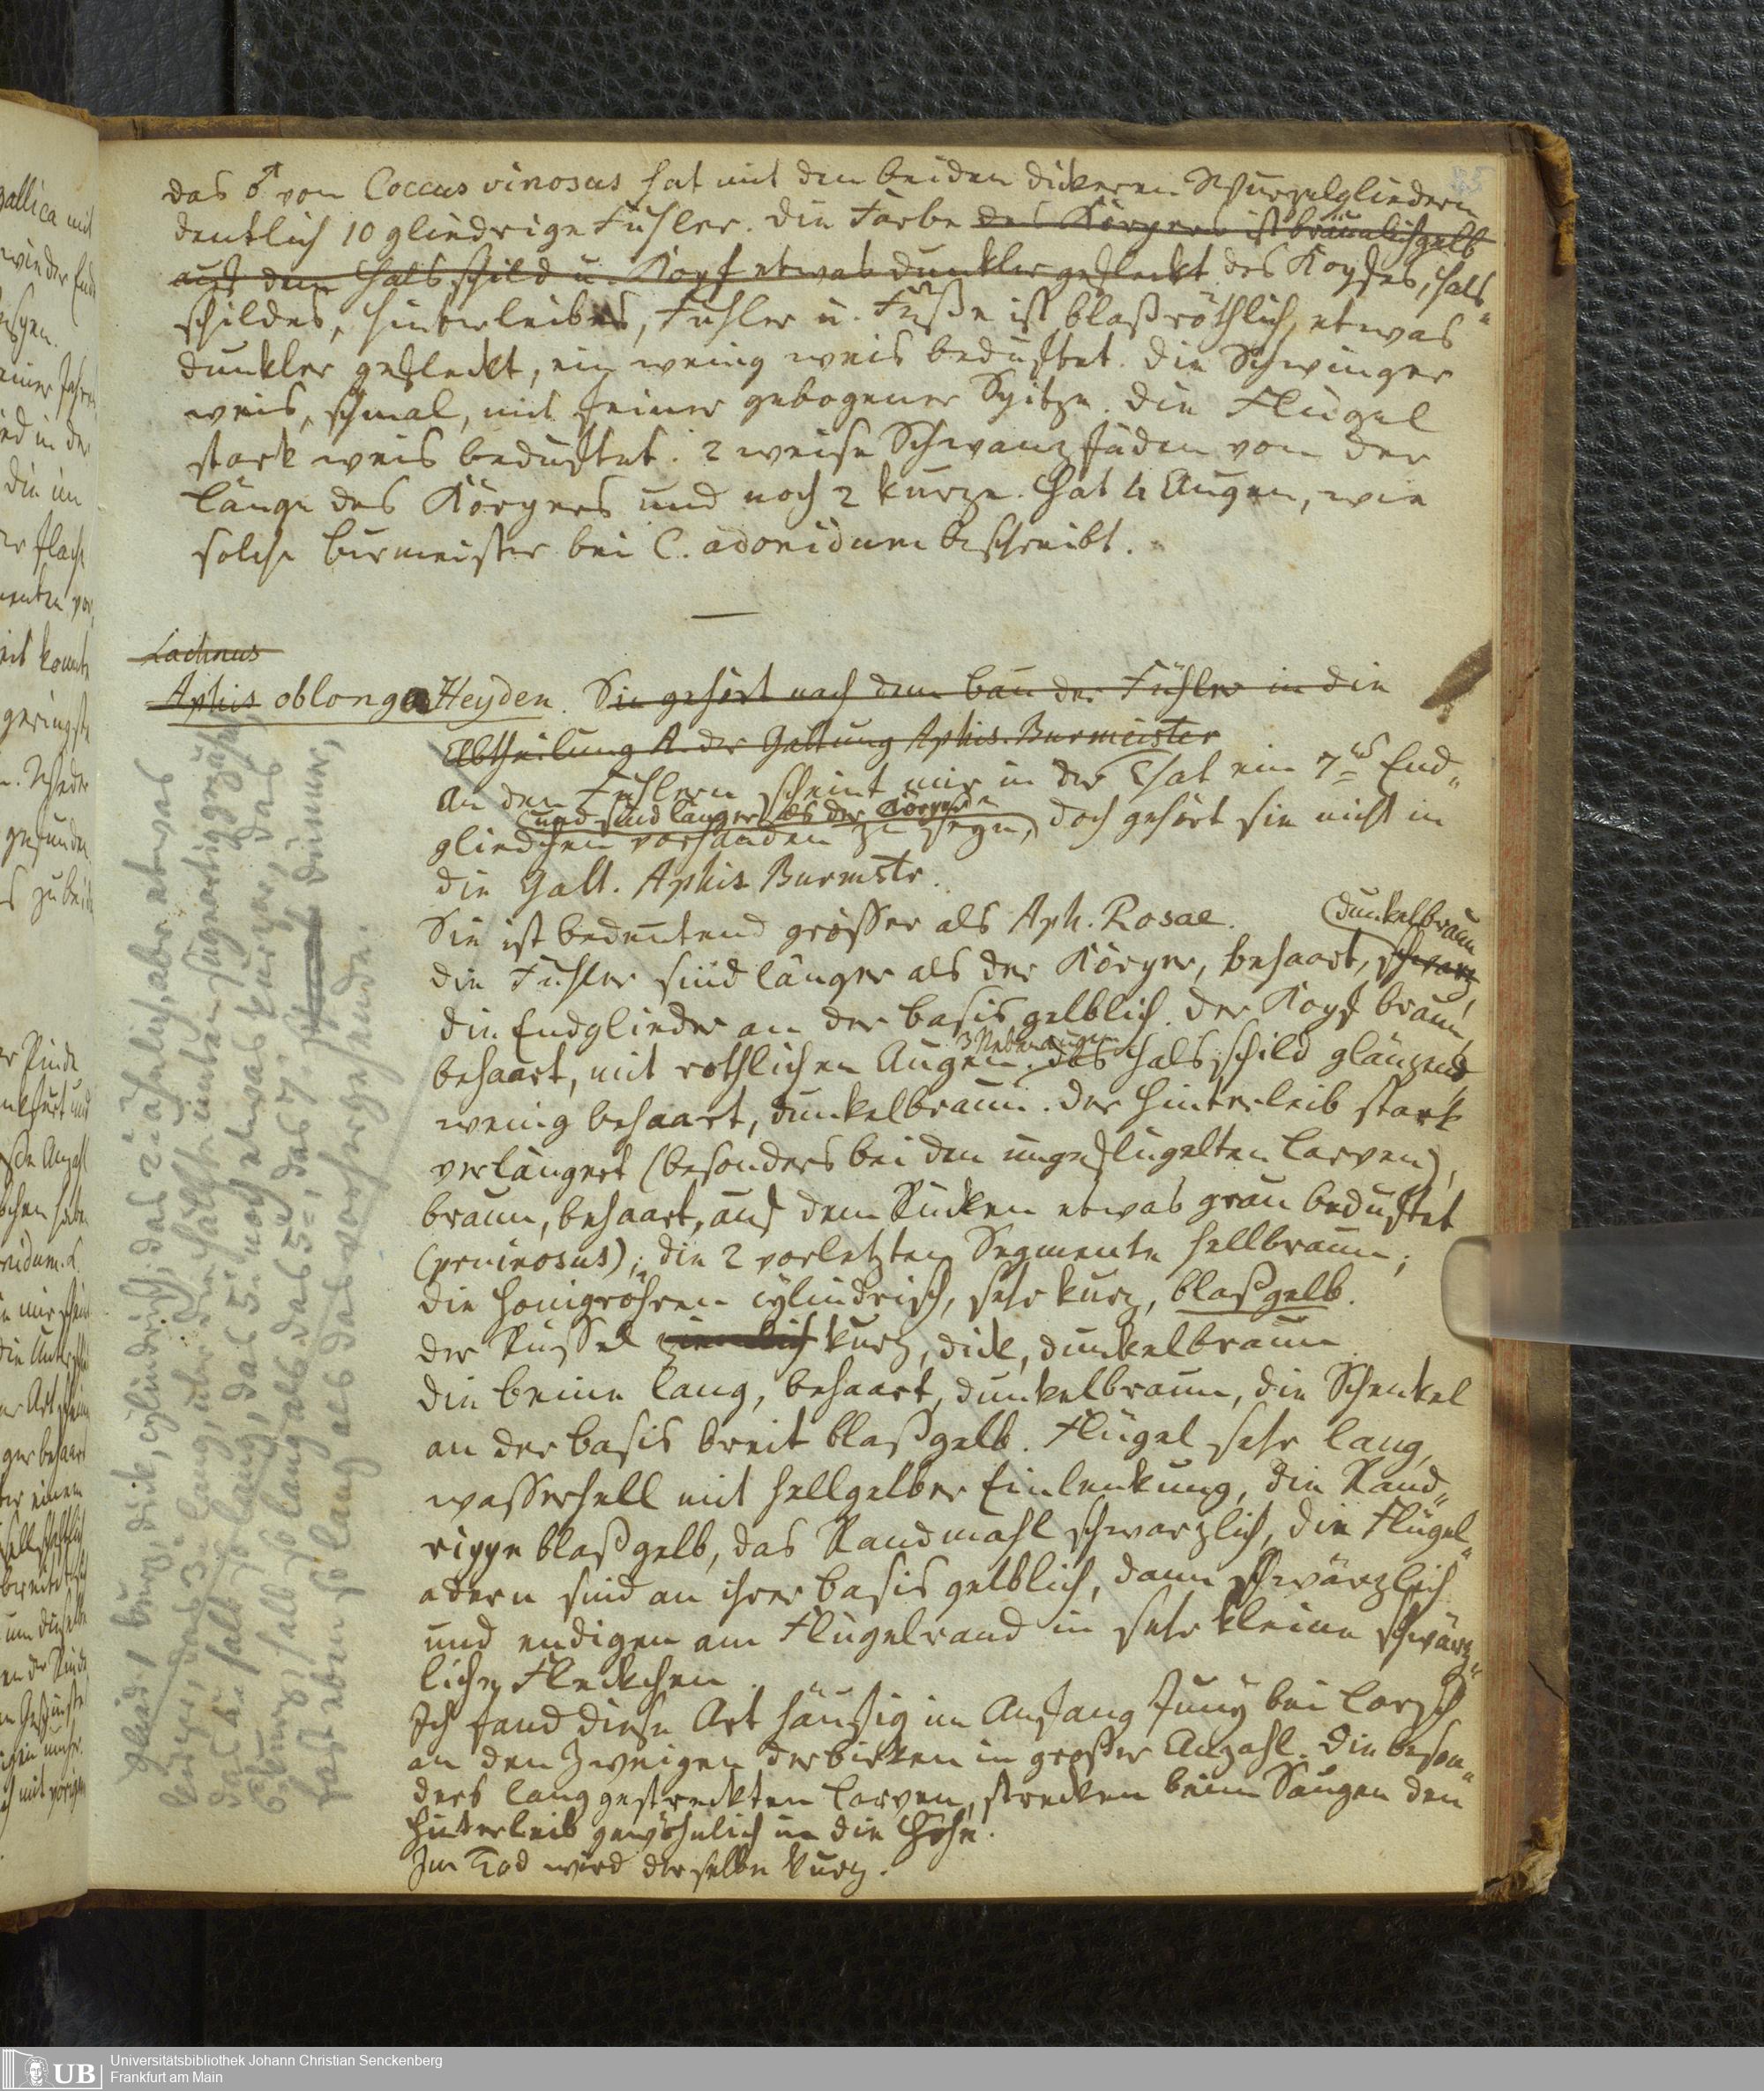 45
das ♂ von Coccus vinosus hat mit den beiden dickeren Wurzelgliedern
deutlich 10 gliedrige Fühler. Die Farbe des Körpers ist bräunlichgelb
auf dem Halsschild u. Kopf etwas dunkler gefleckt des Kopfes, Hals„
schildes, Hinterleibes, Fühler u. Füße ist blaßröthlich, etwas
dunkler gefleckt, ein wenig weis beduftet. Die Schwinger
weis, schmal, mit feiner gebogener Spitze. Die Flügel
stark weis beduftet. 2 weise Schwanzfäden von der
Länge des Körpers und noch 2 kurze. Hat 4 Augen, wie
solche Burmeister bei C. adonidum beschreibt.
Lachnus
Aphis oblonga Heyden. Sie gehört nach dem Bau der Fühler in die
Abtheilung A. der Gattung Aphis. Burmeister
An den Fühlern scheint mir in der That ein 7tes End„
(und sind länger als der Körper)
gliedchen vorhanden zu seyn, doch gehört sie nicht in
die Gatt. Aphis Burmstr.
Sie ist bedeutend grösser als Aph. Rosae.
(dunkelbraun
Die Fühler sind länger als der Körper, behaart, schwarz
die Endglieder an der Basis gelblich. Der Kopf braun,
3 Nebenaugen
behaart, mit röthlichen Augen. das Halsschild glänzend
wenig behaart, dunkelbraun. Der Hinterleib stark
verlängert (besonders bei den ungeflügelten Larven),
braun, behaart, auf dem Rücken etwas grau beduftet
(pruinosus); die 2 vorletzten Segmente hellbraun;
die Honigröhren cylindrisch, sehr kurz, blaßgelb.
Der Rüssel ziemlich kurz, dick, dunkelbraun.
Die Beine lang, behaart, dunkelbraun, die Schenkel
an der Basis breit blaßgelb. Flügel sehr lang,
wasserhell mit hellgelber Einlenkung, die Rand„
rippe blaßgelb, das Randmahl schwarzlich, die Flügel„
adern sind an ihrer Basis gelblich, dann schwärzlich
und endigen am Flügelrand in sehr kleine schwärz„
liche Fleckchen.
Ich fand diese Art häufig im Anfang Juny bei Lorsch
an den Zweigen der Birken in großer Anzahl. Die beson„
ders lang gestreckten Larven, strecken beim Saugen den
Hinterleib gewöhnlich in die Höhe.
Im Tod wird derselbe kurz.
Glied 1 kurz, dick, cylindrisch; das 2te ähnlich, aber etwas
kürzer, das 3te lang, über die Hälfte
das 4te halb so lang, das 5te noch etwas kürzer, das
6te kurz, halb so lang als das 5te, das 7te dünner,
fast eben so lang als das vorhergehende.
Universitätsbibliothek Johann Christian Senckenberg
Frankfurt am Main
UB